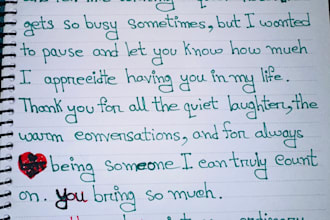 gets so busy sometimes, but I wanted
to pause and let you know how much
I appreciate having you in my life.
Thank you for all the quiet laughter, the
warm conversations, and for always
being someone I can truly count
on. you bring so much.